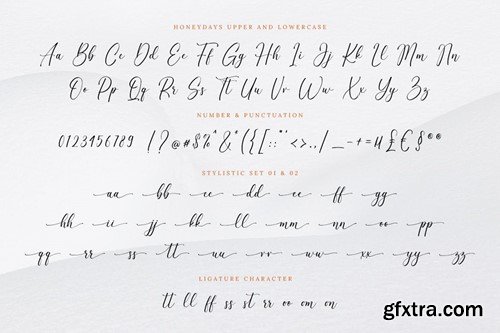 HONEYDAYS UPPER AND LOWERCASE
Aa Bb Cc Dd Ee Ff Gg Hh Ii Jj Kk Ll Mm Nn
Oo Pp Qq Rr Ss Tt Uu Vv Ww Xx Yy Zz
NUMBER & PUNCTUATION
0123456789 !?@#$%^&*({[:;"'<>.,/_-+=
STYLISTIC SET 01 & 02
aa bb cc dd ee ff gg
hh ii jj kk ll mm nn oo pp
qq rr ss tt uu vv ww xx yy zz
LIGATURE CHARACTER
tt ll ff ss st rr oo om on
gfxtra.com